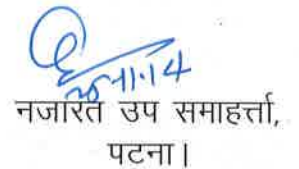 26.11.14
नजारत उप समाहर्त्ता,
पटना।